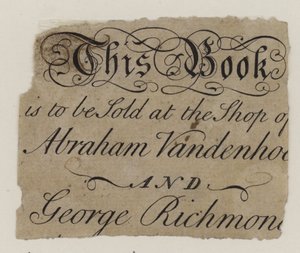 This Book
is to be Sold at the Shop of
Abraham Vandenhoe
AND
George Richmond